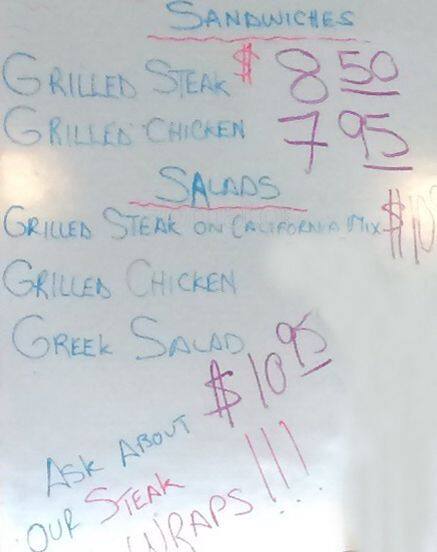 SANDWICHES
GRILLED STEAK $ 8 50
GRILLED CHICKEN 7 95
SALADS
GRILLED STEAK ON CALIFORNIA MIX
GRILLED CHICKEN
GREEK SALAD $10 95
ASK ABOUT
OUR STEAK
WRAPS!!!